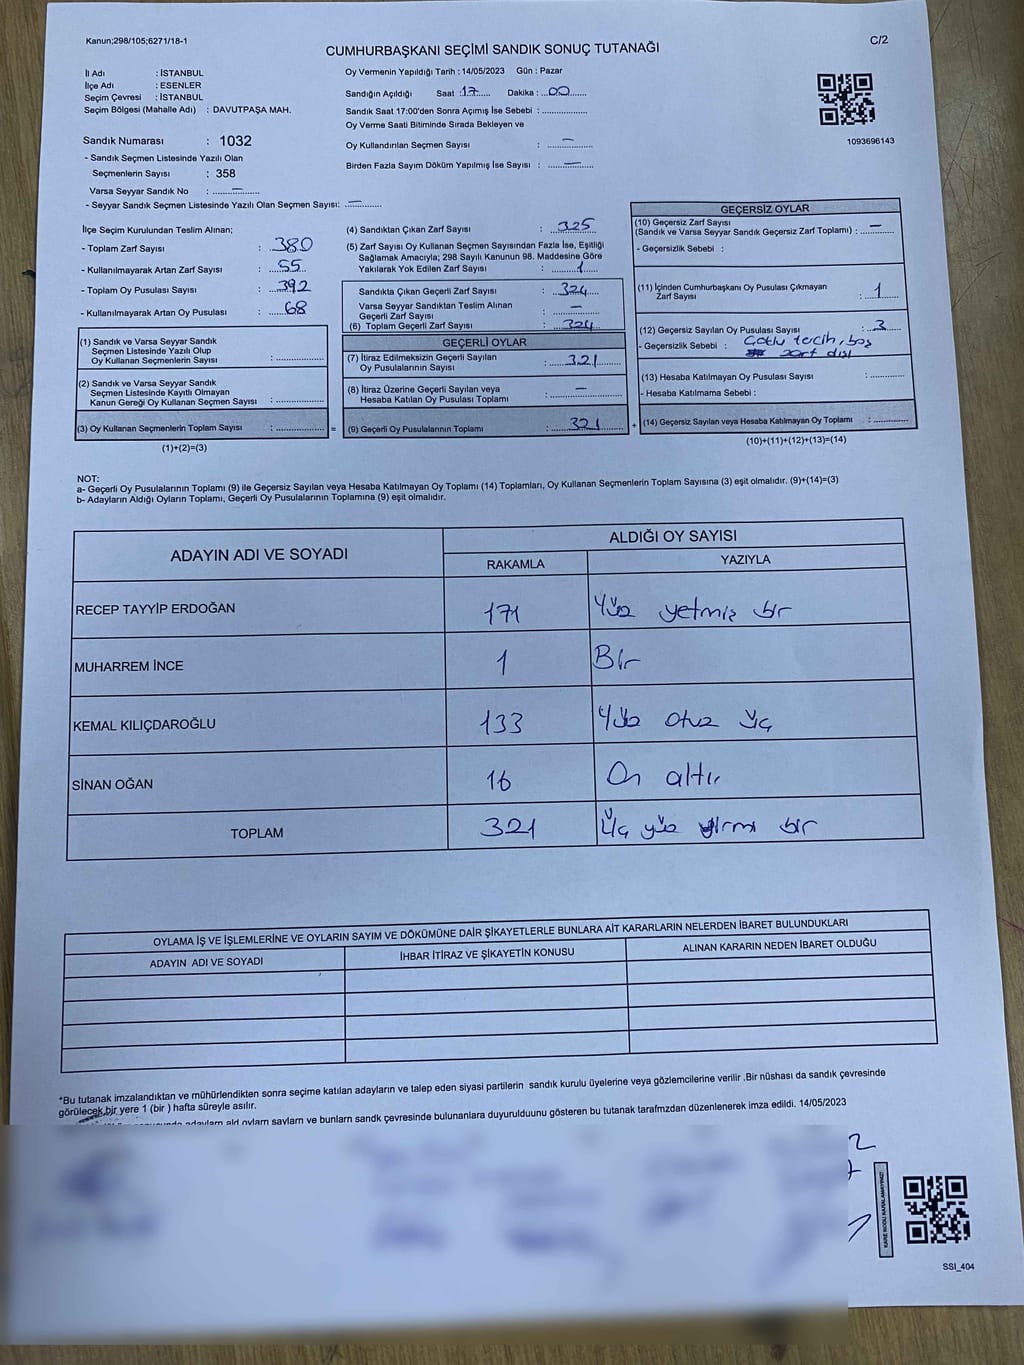 Kanun;298/105;6271/18-1
C/2
CUMHURBAŞKANI SEÇİMİ SANDIK SONUÇ TUTANAĞI
İl Adı : İSTANBUL
İlçe Adı : ESENLER
Seçim Çevresi : İSTANBUL
Seçim Bölgesi (Mahalle Adı) : DAVUTPAŞA MAH.
Sandık Numarası : 1032
- Sandık Seçmen Listesinde Yazılı Olan
Seçmenlerin Sayısı : 358
Varsa Seyyar Sandık No : —
- Seyyar Sandık Seçmen Listesinde Yazılı Olan Seçmen Sayısı: —
Oy Vermenin Yapıldığı Tarih : 14/05/2023 Gün : Pazar
Sandığın Açıldığı Saat : 17 Dakika : 00
Sandık Saat 17:00'den Sonra Açımış İse Sebebi :
Oy Verme Saati Bitiminde Sırada Bekleyen ve
Oy Kullandırılan Seçmen Sayısı : —
Birden Fazla Sayım Döküm Yapılmış İse Sayısı : —
1093696143
İlçe Seçim Kurulundan Teslim Alınan;
- Toplam Zarf Sayısı : 380
- Kullanılmayarak Artan Zarf Sayısı : 55
- Toplam Oy Pusulası Sayısı : 392
- Kullanılmayarak Artan Oy Pusulası : 68
(1) Sandık ve Varsa Seyyar Sandık
Seçmen Listesinde Yazılı Olup
Oy Kullanan Seçmenlerin Sayısı :
(2) Sandık ve Varsa Seyyar Sandık
Seçmen Listesinde Kayıtlı Olmayan
Kanun Gereği Oy Kullanan Seçmen Sayısı :
(3) Oy Kullanan Seçmenlerin Toplam Sayısı : =
(1)+(2)=(3)
(4) Sandıktan Çıkan Zarf Sayısı : 325
(5) Zarf Sayısı Oy Kullanan Seçmen Sayısından Fazla İse, Eşitliği
Sağlamak Amacıyla; 298 Sayılı Kanunun 98. Maddesine Göre
Yakılarak Yok Edilen Zarf Sayısı : 1
Sandıkta Çıkan Geçerli Zarf Sayısı : 324
Varsa Seyyar Sandıktan Teslim Alınan
Geçerli Zarf Sayısı : —
(6) Toplam Geçerli Zarf Sayısı : 324
GEÇERLİ OYLAR
(7) İtiraz Edilmeksizin Geçerli Sayılan
Oy Pusulalarının Sayısı : 321
(8) İtiraz Üzerine Geçerli Sayılan veya
Hesaba Katılan Oy Pusulası Toplamı : —
(9) Geçerli Oy Pusulalarının Toplamı : 321 +
GEÇERSİZ OYLAR
(10) Geçersiz Zarf Sayısı
(Sandık ve Varsa Seyyar Sandık Geçersiz Zarf Toplamı) : —
- Geçersizlik Sebebi :
(11) İçinden Cumhurbaşkanı Oy Pusulası Çıkmayan
Zarf Sayısı : 1
(12) Geçersiz Sayılan Oy Pusulası Sayısı : 3
- Geçersizlik Sebebi : Çoklu tercih, boş
zarf dışı
(13) Hesaba Katılmayan Oy Pusulası Sayısı :
- Hesaba Katılmama Sebebi :
(14) Geçersiz Sayılan veya Hesaba Katılmayan Oy Toplamı :
(10)+(11)+(12)+(13)=(14)
NOT:
a- Geçerli Oy Pusulalarının Toplamı (9) ile Geçersiz Sayılan veya Hesaba Katılmayan Oy Toplamı (14) Toplamları, Oy Kullanan Seçmenlerin Toplam Sayısına (3) eşit olmalıdır. (9)+(14)=(3)
b- Adayların Aldığı Oyların Toplamı, Geçerli Oy Pusulalarının Toplamına (9) eşit olmalıdır.
ADAYIN ADI VE SOYADI
ALDIĞI OY SAYISI
RAKAMLA YAZIYLA
RECEP TAYYİP ERDOĞAN 171 Yüz yetmiş bir
MUHARREM İNCE 1 Bir
KEMAL KILIÇDAROĞLU 133 Yüz otuz üç
SİNAN OĞAN 16 On altı
TOPLAM 321 Üç yüz yirmi bir
OYLAMA İŞ VE İŞLEMLERİNE VE OYLARIN SAYIM VE DÖKÜMÜNE DAİR ŞİKAYETLERLE BUNLARA AİT KARARLARIN NELERDEN İBARET BULUNDUKLARI
ADAYIN ADI VE SOYADI İHBAR İTİRAZ VE ŞİKAYETİN KONUSU ALINAN KARARIN NEDEN İBARET OLDUĞU
*Bu tutanak imzalandıktan ve mühürlendikten sonra seçime katılan adayların ve talep eden siyasi partilerin sandık kurulu üyelerine veya gözlemcilerine verilir .Bir nüshası da sandık çevresinde
görülecek bir yere 1 (bir ) hafta süreyle asılır.
adayların ald oyların sayların ve bunların sandk çevresinde bulunanlara duyurulduunu gösteren bu tutanak tarafmzdan düzenlenerek imza edildi. 14/05/2023
KARE KODU KARALAMAYINIZ!
SSI_404